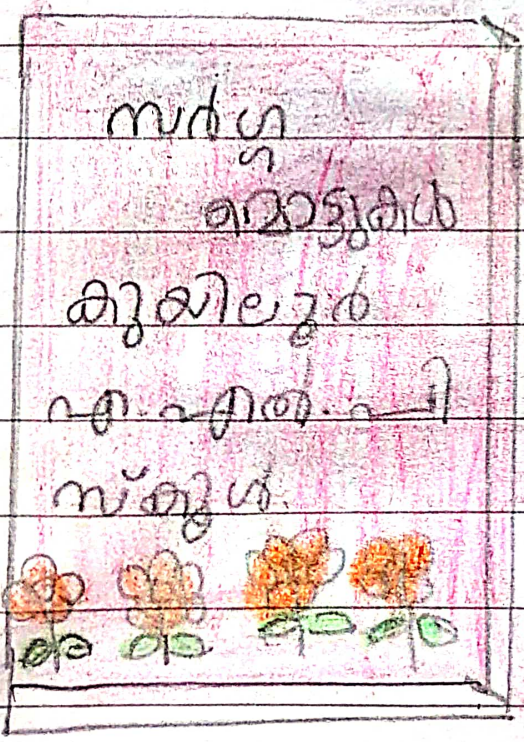 സർഗ്ഗ
മൊട്ടുകൾ
കുയിലൂർ
എ.എൽ.പി
സ്ക്കൂൾ.